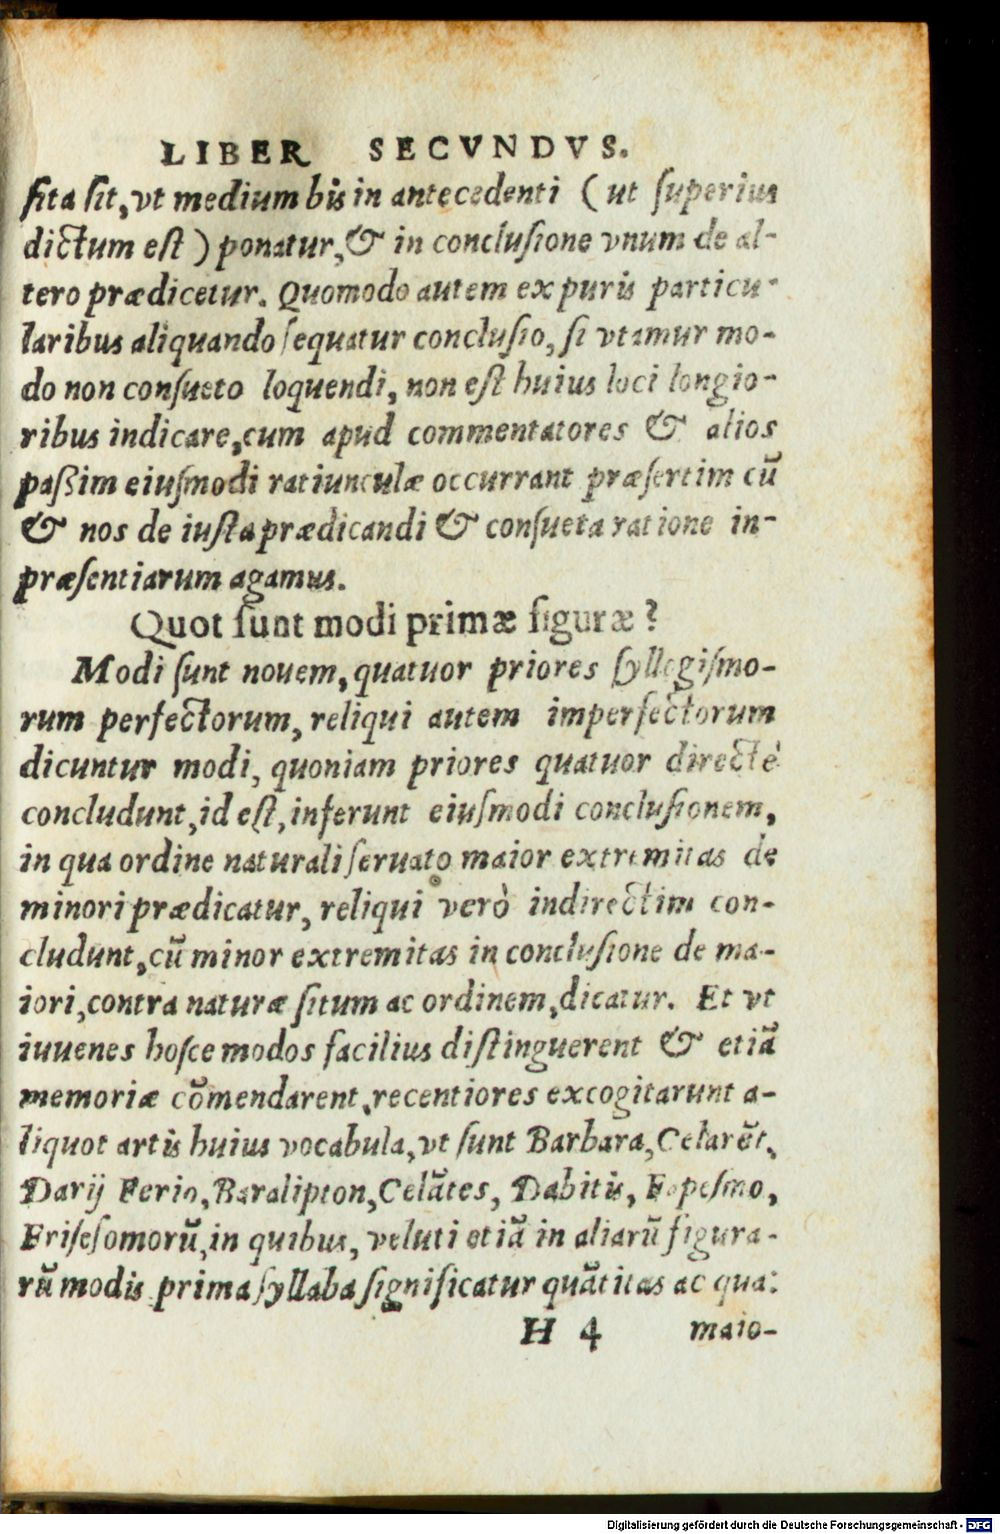 LIBER SECVNDVS.
ſita ſit, vt medium bis in antecedenti (ut ſuperius
dictum eſt) ponatur, & in concluſione vnum de al-
tero prædicetur. Quomodo autem ex puris particu-
laribus aliquando ſequatur concluſio, ſi vtamur mo-
do non conſueto loquendi, non eſt huius loci longio-
ribus indicare, cum apud commentatores & alios
paßim eiuſmodi ratiunculæ occurrant præſertim cū
& nos de iuſta prædicandi & conſueta ratione in-
præſentiarum agamus.
Quot ſunt modi primæ figuræ?
Modi ſunt nouem, quatuor priores ſyllogiſmo-
rum perfectorum, reliqui autem imperfectorum
dicuntur modi, quoniam priores quatuor directè
concludunt, id eſt, inferunt eiuſmodi concluſionem,
in qua ordine naturali ſeruato maior extremitas de
minori prædicatur, reliqui verò indirectim con-
cludunt, cū minor extremitas in concluſione de ma-
iori, contra naturæ ſitum ac ordinem, dicatur. Et vt
iuuenes hoſce modos facilius diſtinguerent & etiā
memoriæ cōmendarent, recentiores excogitarunt a-
liquot artis huius vocabula, vt ſunt Barbara, Celarēt,
Darij Ferio, Baralipton, Celātes, Dabitis, Fapeſmo,
Friſeſomorū, in quibus, veluti etiā in aliarū figura-
rū modis prima ſyllaba ſignificatur quātitas ac qua:
H 4 maio-
Digitalisierung gefördert durch die Deutsche Forschungsgemeinschaft - DFG